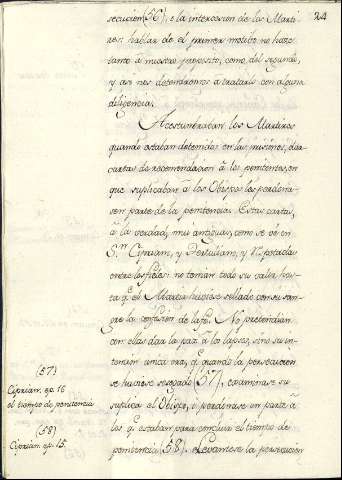 24
secucion (56), e la intercesion de los Marti-
res: hablar de el primer motibo no hace
tanto a nuestro proposito, como del segundo,
y asi nos detendremos a tratarlo con alguna
diligencia.
Acostumbraban los Martires
quando estaban detenidos en las prisiones, dar
cartas de recomendacion à los penitentes, en
que suplicaban a los Obispos les perdona-
sen parte de la penitencia. Estas cartas,
à la verdad, mui antiguas, como se vé en
Sn. Cipriano, y Tertuliano, y
entre los fieles: no tenian todo su valor has-
ta qe. el Martir hubiese sellado con su san-
gre la confesion de la fe. No pretendian
con ellas dar la paz à los lapsos, sino su in-
tencion unica era, qe. quando la persecucion
se huviese sosegado (57), examinase su
suplica el Obispo, i perdonase en parte à
los qe. estaban para concluir el tiempo de
penitencia (58). Levantose la persecucion
(57)
Ciprian. ep. 16
el tiempo de penitencia
(58)
Ciprian. ep. 15.